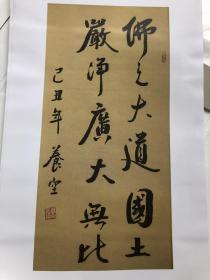 佛之大道國土
嚴淨廣大無比
己丑年 養空